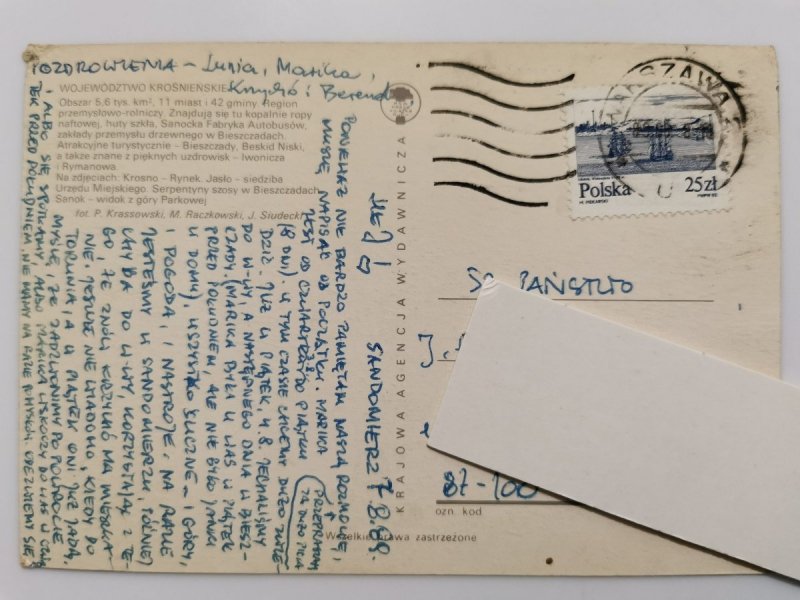 POZDROWIENIA – Lunia, Marika,
Krzyś i Berenda
WOJEWÓDZTWO KROŚNIEŃSKIE
Obszar 5,6 tys. km², 11 miast i 42 gminy. Region
przemysłowo-rolniczy. Znajdują się tu kopalnie ropy
naftowej, huty szkła, Sanocka Fabryka Autobusów,
zakłady przemysłu drzewnego w Bieszczadach.
Atrakcyjne turystycznie - Bieszczady, Beskid Niski,
a także znane z pięknych uzdrowisk - Iwonicza
i Rymanowa.
Na zdjęciach: Krosno - Rynek. Jasło - siedziba
Urzędu Miejskiego. Serpentyny szosy w Bieszczadach.
Sanok - widok z góry Parkowej
fot. P. Krassowski, M. Raczkowski, J. Siudecki
SANDOMIERZ 7.8.89.
PONIEWAŻ NIE BARDZO PAMIĘTAM NASZĄ ROZMOWĘ,
MUSZĘ NAPISAĆ OD POCZĄTKU. MARIKA
JEST OD CZWARTKU DO PIĄTKU
(8 DNI). W TYM CZASIE CHCEMY DUŻO
PRZEPRASZAM
ZA DUŻO PIŁA
JUŻ W PIĄTEK, 4.8. JECHALIŚMY
DO W-WY, A NASTĘPNEGO DNIA W BIESZ-
CZADY. (MARIKA BYŁA U WAS W PIĄTEK
PRZED POŁUDNIEM, ALE NIE BYŁO
W DOMU), WSZYSTKO ŚLICZNE – I GÓRY,
I POGODA, I NASTROJE. NA RAZIE
JESTEŚMY W SANDOMIERZU, PÓŹNIEJ
CHYBA DO W-WY, KORZYSTAJĄC Z TE-
GO, ŻE ZNÓW KRZYŚ MA MIESZKA-
NIE. JESZCZE NIE WIADOMO, KIEDY DO
TORUNIA, A W PIĄTEK ONI JUŻ JADĄ.
MYŚLĘ, ŻE ZADZWONIMY PO POWROCIE
I ALBO SIĘ SPOTKAMY, ALBO MARIKA WSKOCZY DO WAS W CZWAR
TEK PRZED POŁUDNIEM. NIE MAMY NA RAZIE POMYSŁU. ODEZWIEMY SIĘ
KRAJOWA AGENCJA WYDAWNICZA
WARSZAWA
Polska 25zł
Sz. PAŃSTWO
J.
87-100
ozn. kod
Wszelkie prawa zastrzeżone